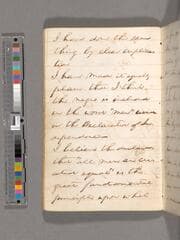 I have done the same
thing by clear implica-
tion.
I have made it equally
plain that I think
the negro is included
in the word "men" used
in the Declaration of In-
dependence.
I believe the declara-
that "all men are cre-
ated equal" is the
great fundamental
principle upon which